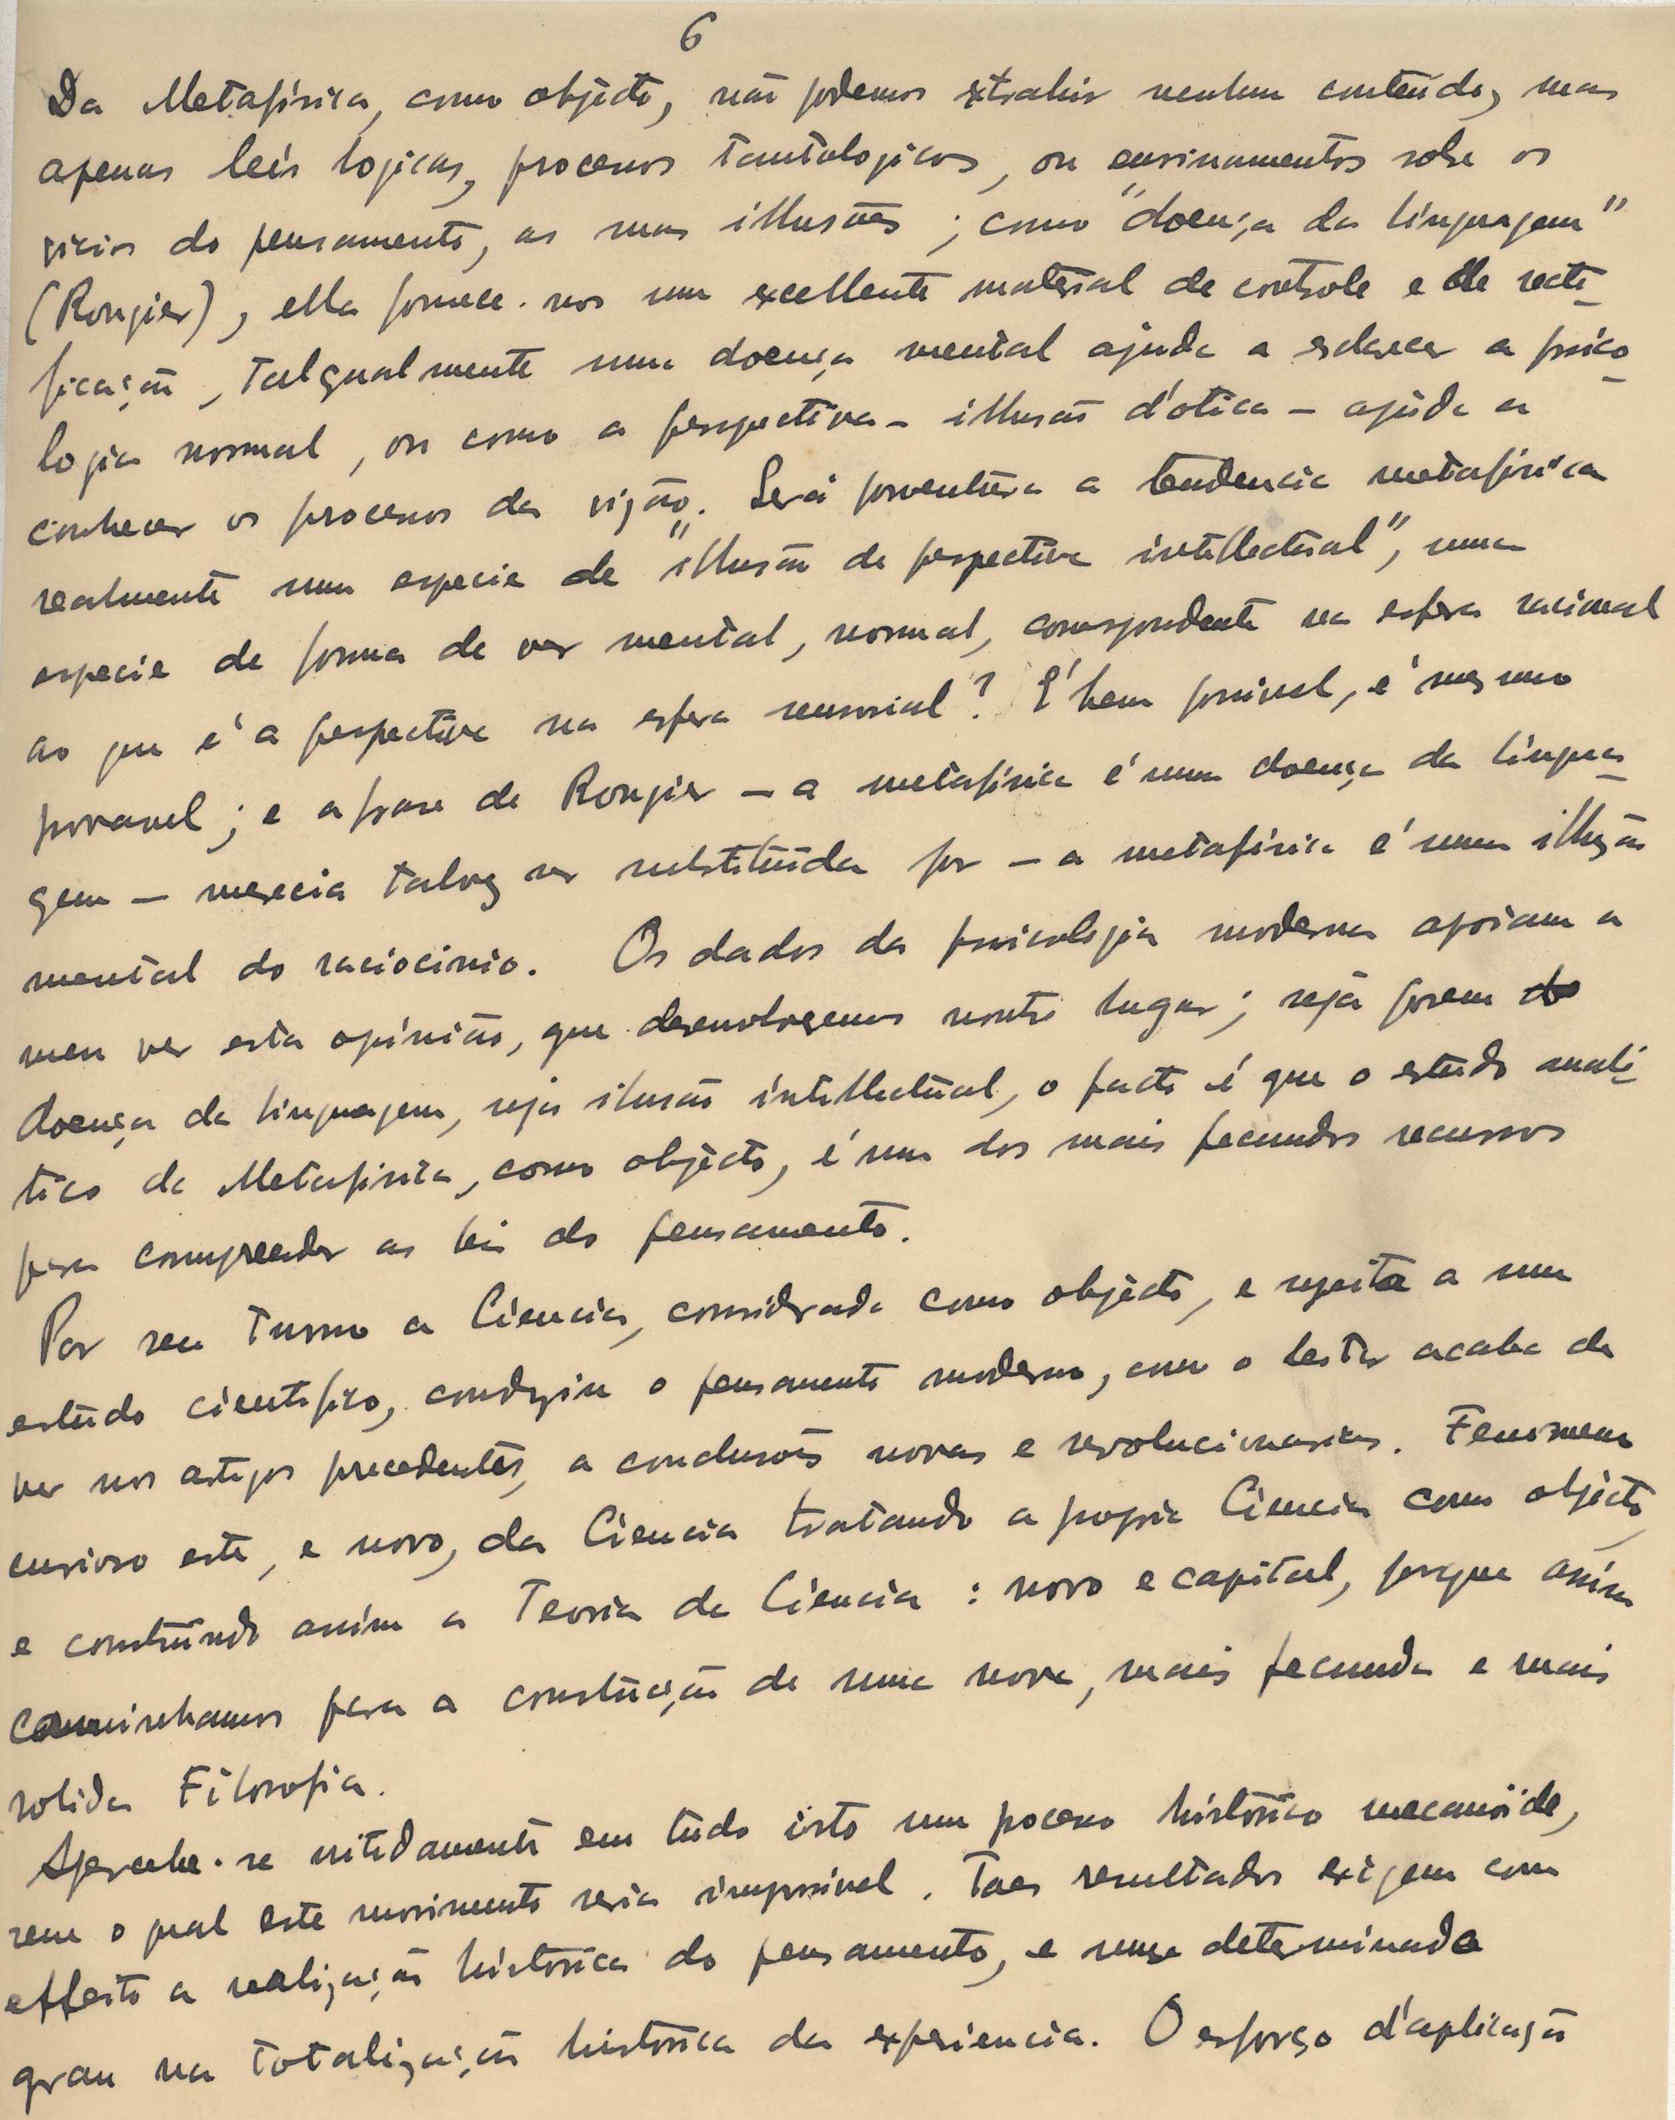 6
Da Metafísica, como objécto, não podemos extrahir nenhum conteúdo, mas
apenas leis logicas, processos tautologicos, ou ensinamentos sobre os
vicios do pensamento, as suas illusões ; como "doença da linguagem"
(Rougier), ella fornece-nos um excellente material de controle e de recti-
ficação, talqualmente uma doença mental ajuda a esclarecer a psico-
logia normal, ou como a perspectiva - illusão d'otica - ajuda a
conhecer os processos da visão. Será porventura a tendencia metafisica
realmente uma especie de "illusão de perspectiva intellectual", uma
especie de forma de ver mental, normal, correspondente na esfera racional
ao que é a perspectiva na esfera sensorial? É bem possivel, é mesmo
provavel ; e a frase de Rougier - a metafísica é uma doença da lingua-
gem - merecia talvez ser substituída por - a metafísica é uma illusão
mental do raciocinio. Os dados da psicologia moderna apoiam a
meu ver esta opinião, que desenvolvemos noutro lugar ; seja porem
doença da linguagem, seja ilusão intellectual, o facto é que o estudo anali-
tico da Metafisica, como objécto, é um dos mais fecundos recursos
para compreender as leis do pensamento.
Por seu turno a Ciencia, considerada como objécto, e sujeita a um
estudo cientifico, conduziu o pensamento moderno, como o leitor acaba de
ver nos artigos precedentes, a conclusões novas e revolucionarias. Fenomeno
curioso este, e novo, da Ciencia tratando a propria Ciencia como objécto,
e construindo assim a Teoria da Ciencia : novo e capital, porque assim
caminhamos para a construção de uma nova, mais fecunda e mais
solida Filosofia.
Apercebe-se nitidamente em tudo isto um processo histórico mecanóide,
sem o qual este movimento seria impossivel. Taes resultados exigem com
effeito a realização histórica do pensamento, e um determinado
grau na totalização histórica da experiencia. O esforço d'aplicação